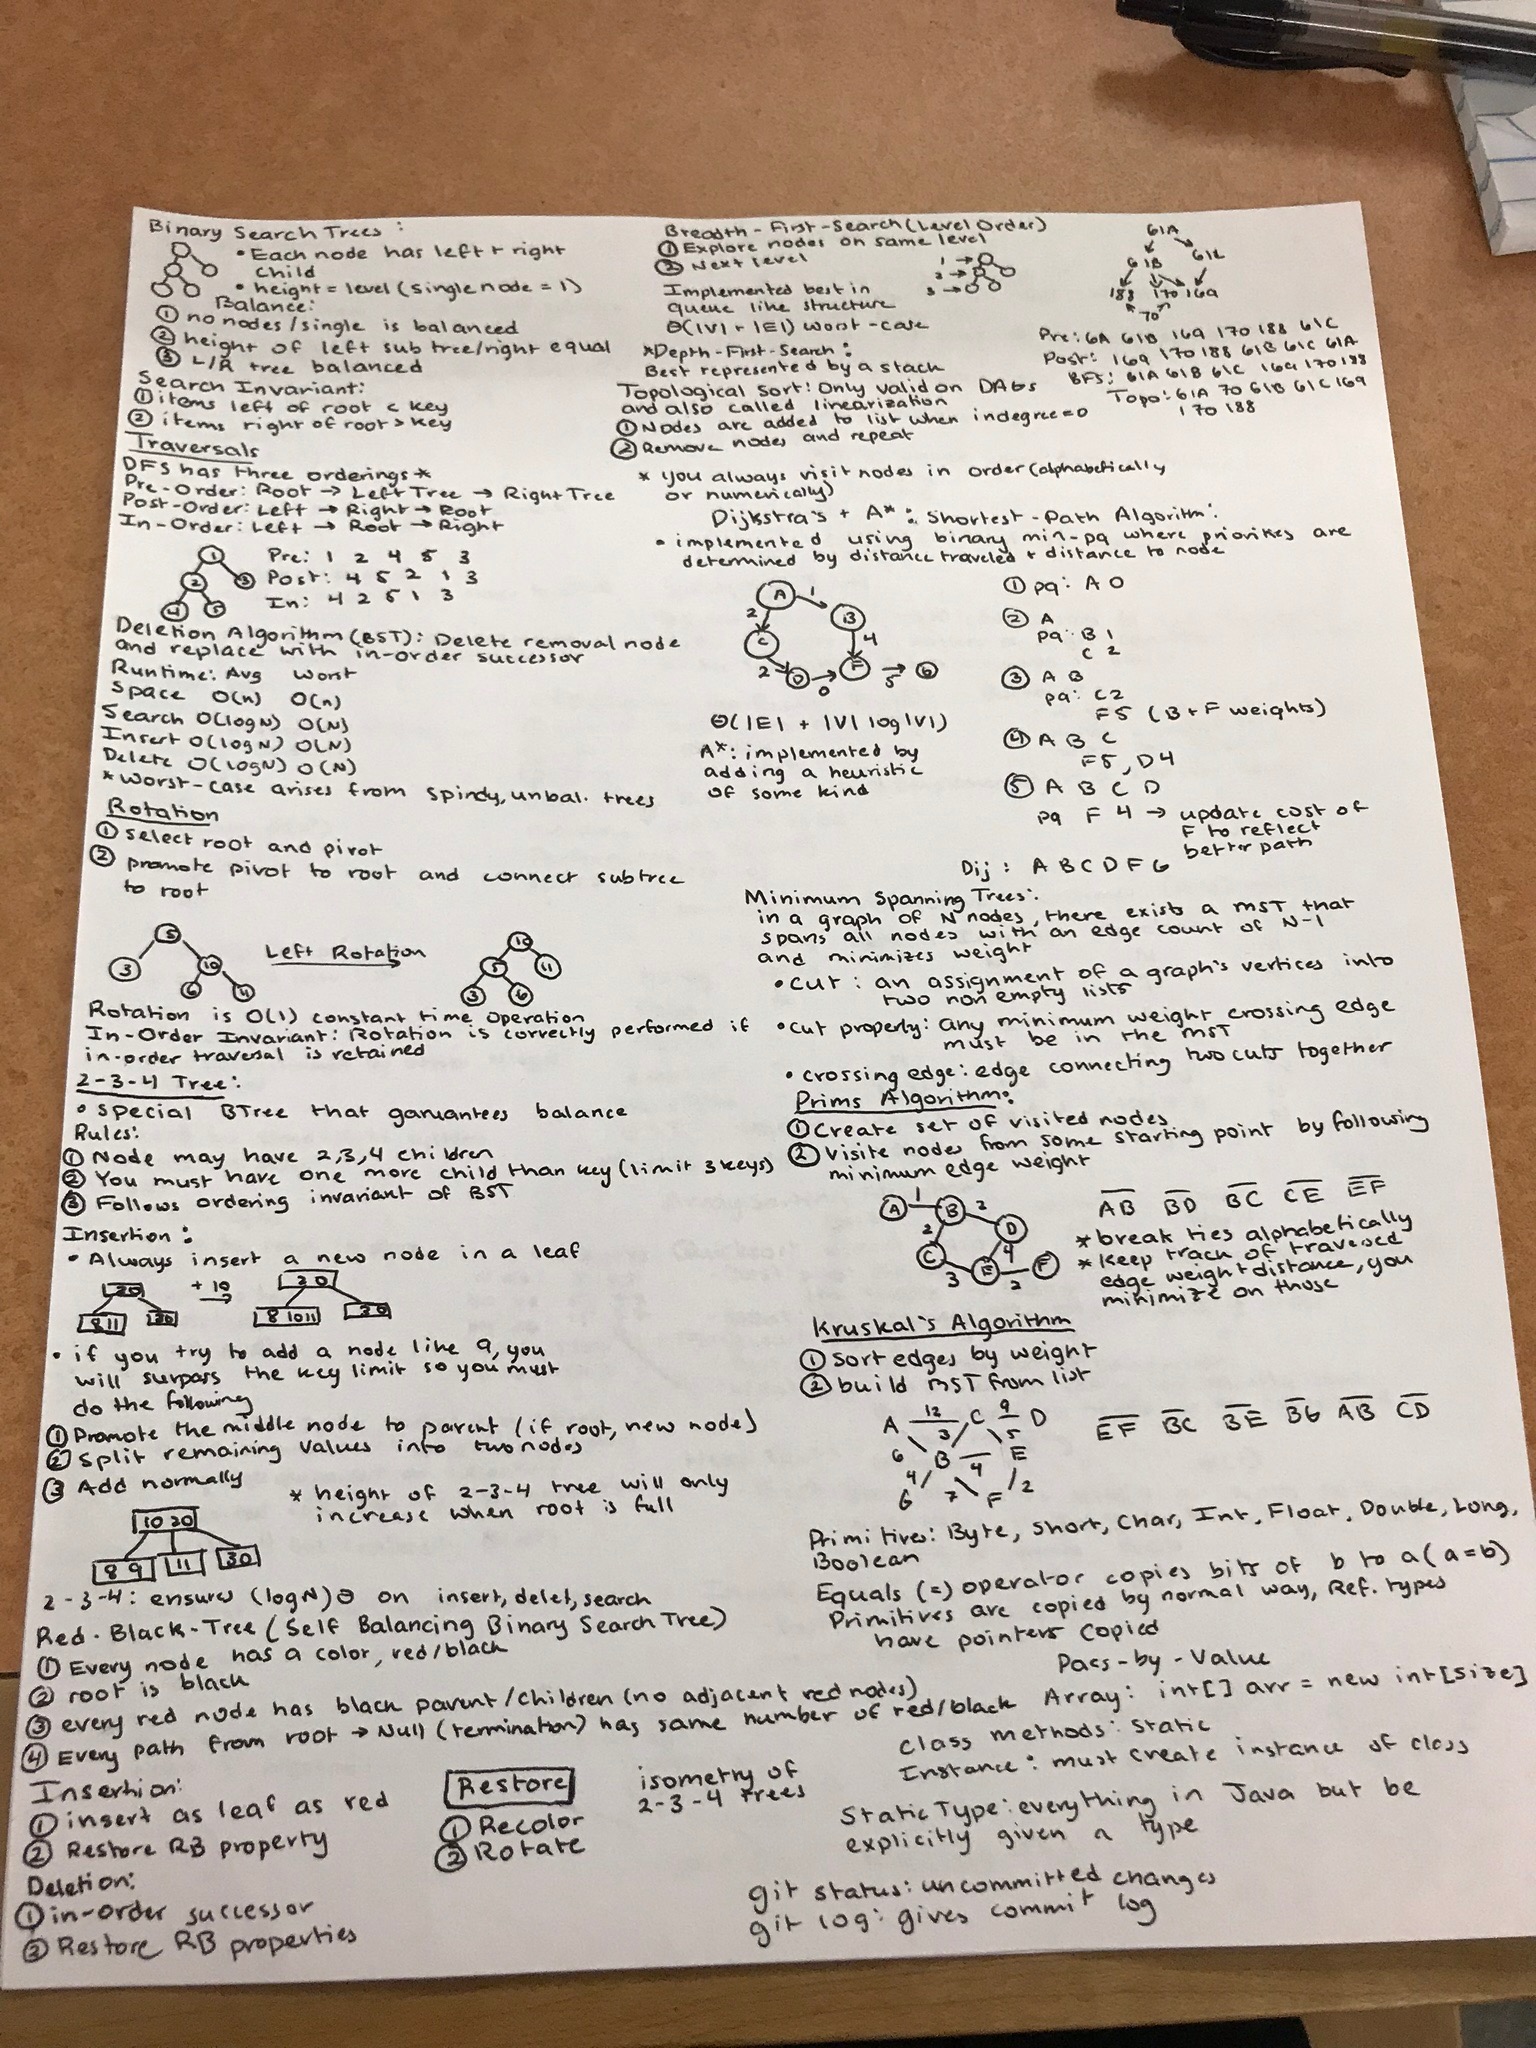 Binary Search Trees:
• Each node has left + right
child
• height = level (single node = 1)
Balance:
① no nodes/single is balanced
② height of left sub tree/right equal
③ L/R tree balanced
Search Invariant:
① items left of root < key
② items right of root > key
Traversals
DFS has three orderings *
Pre-Order: Root → Left Tree → Right Tree
Post-Order: Left → Right → Root
In-Order: Left → Root → Right
1
2 3
4 5
Pre: 1 2 4 5 3
Post: 4 5 2 1 3
In: 4 2 5 1 3
Deletion Algorithm (BST): Delete removal node
and replace with in-order successor
Runtime: Avg Worst
Space O(n) O(n)
Search O(logN) O(N)
Insert O(logN) O(N)
Delete O(logN) O(N)
* Worst-case arises from spindy, unbal. trees
Rotation
① select root and pivot
② promote pivot to root and connect subtree
to root
5
3 10
6
Left Rotation
10
5 11
3 6
Rotation is O(1) constant time operation
In-Order Invariant: Rotation is correctly performed if
in-order traversal is retained
2-3-4 Tree:
• special BTree that garuantees balance
Rules:
① Node may have 2,3,4 children
② You must have one more child than key (limit 3 keys)
③ Follows ordering invariant of BST
Insertion:
• Always insert a new node in a leaf
20
8 11 30
+ 10
20
8 10 11 30
• if you try to add a node like 9, you
will surpass the key limit so you must
do the following
① Promote the middle node to parent (if root, new node)
② Split remaining values into two nodes
③ Add normally
* height of 2-3-4 tree will only
increase when root is full
10 20
8 9 11 30
2-3-4: ensures (logN)Θ on insert, delet, search
Red-Black-Tree (Self Balancing Binary Search Tree)
① Every node has a color, red/black
② root is black
③ every red node has black parent/children (no adjacent red nodes)
④ Every path from root → Null (termination) has same number of red/black
Insertion:
① insert as leaf as red
② Restore RB property
Deletion:
① in-order successor
② Restore RB properties
Restore
① Recolor
② Rotate
isometry of
2-3-4 trees
Breadth-First-Search (Level Order)
① Explore nodes on same level
② Next level
Implemented best in
queue like structure
Θ(|V| + |E|) worst-case
1 →
2 →
3 →
61A
61B 61C
188 170 169
70
Pre: 61A 61B 169 170 188 61C
Post: 169 170 188 61B 61C 61A
BFS: 61A 61B 61C 169 170 188
Topo: 61A 70 61B 61C 169
170 188
*Depth-First-Search:
Best represented by a stack
Topological Sort: Only valid on DAGs
and also called linearization
① Nodes are added to list when indegree=0
② Remove nodes and repeat
* you always visit nodes in order (alphabetically
or numerically)
Dijkstra's + A*: Shortest-Path Algorithm:
• implemented using binary min-pq where priorities are
determined by distance traveled + distance to node
A 1 B
2 4
C 2 D 0 F 5 G
Θ(|E| + |V| log|V|)
A*: implemented by
adding a heuristic
of some kind
① pq: A 0
② A
pq: B 1
C 2
③ A B
pq: C2
F5 (B+F weights)
④ A B C
F5, D4
⑤ A B C D
pq F 4 → update cost of
F to reflect
better path
Dij: A B C D F G
Minimum Spanning Trees:
in a graph of N nodes, there exists a MST that
spans all nodes with an edge count of N-1
and minimizes weight
• Cut: an assignment of a graph's vertices into
two non empty lists
• Cut property: any minimum weight crossing edge
must be in the MST
• crossing edge: edge connecting two cuts together
Prims Algorithm:
① Create set of visited nodes
② Visite nodes from some starting point by following
minimum edge weight
A 1 B 2 D
2 4
C 3 E 2 F
AB BD BC CE EF
* break ties alphabetically
* Keep track of traversed
edge weight distance, you
minimize on those
Kruskal's Algorithm
① Sort edges by weight
② build MST from list
A 12 C 9 D
6 3 5
B 4 E
4 7 2
G F
EF BC BE BG AB CD
Primitives: Byte, Short, Char, Int, Float, Double, Long,
Boolean
Equals (=) operator copies bits of b to a (a=b)
Primitives are copied by normal way, Ref. types
have pointers copied
Pass-by-Value
Array: int[] arr = new int[size]
Class methods: static
Instance: must create instance of class
Static Type: everything in Java but be
explicitly given a type
git status: uncommitted changes
git log: gives commit log